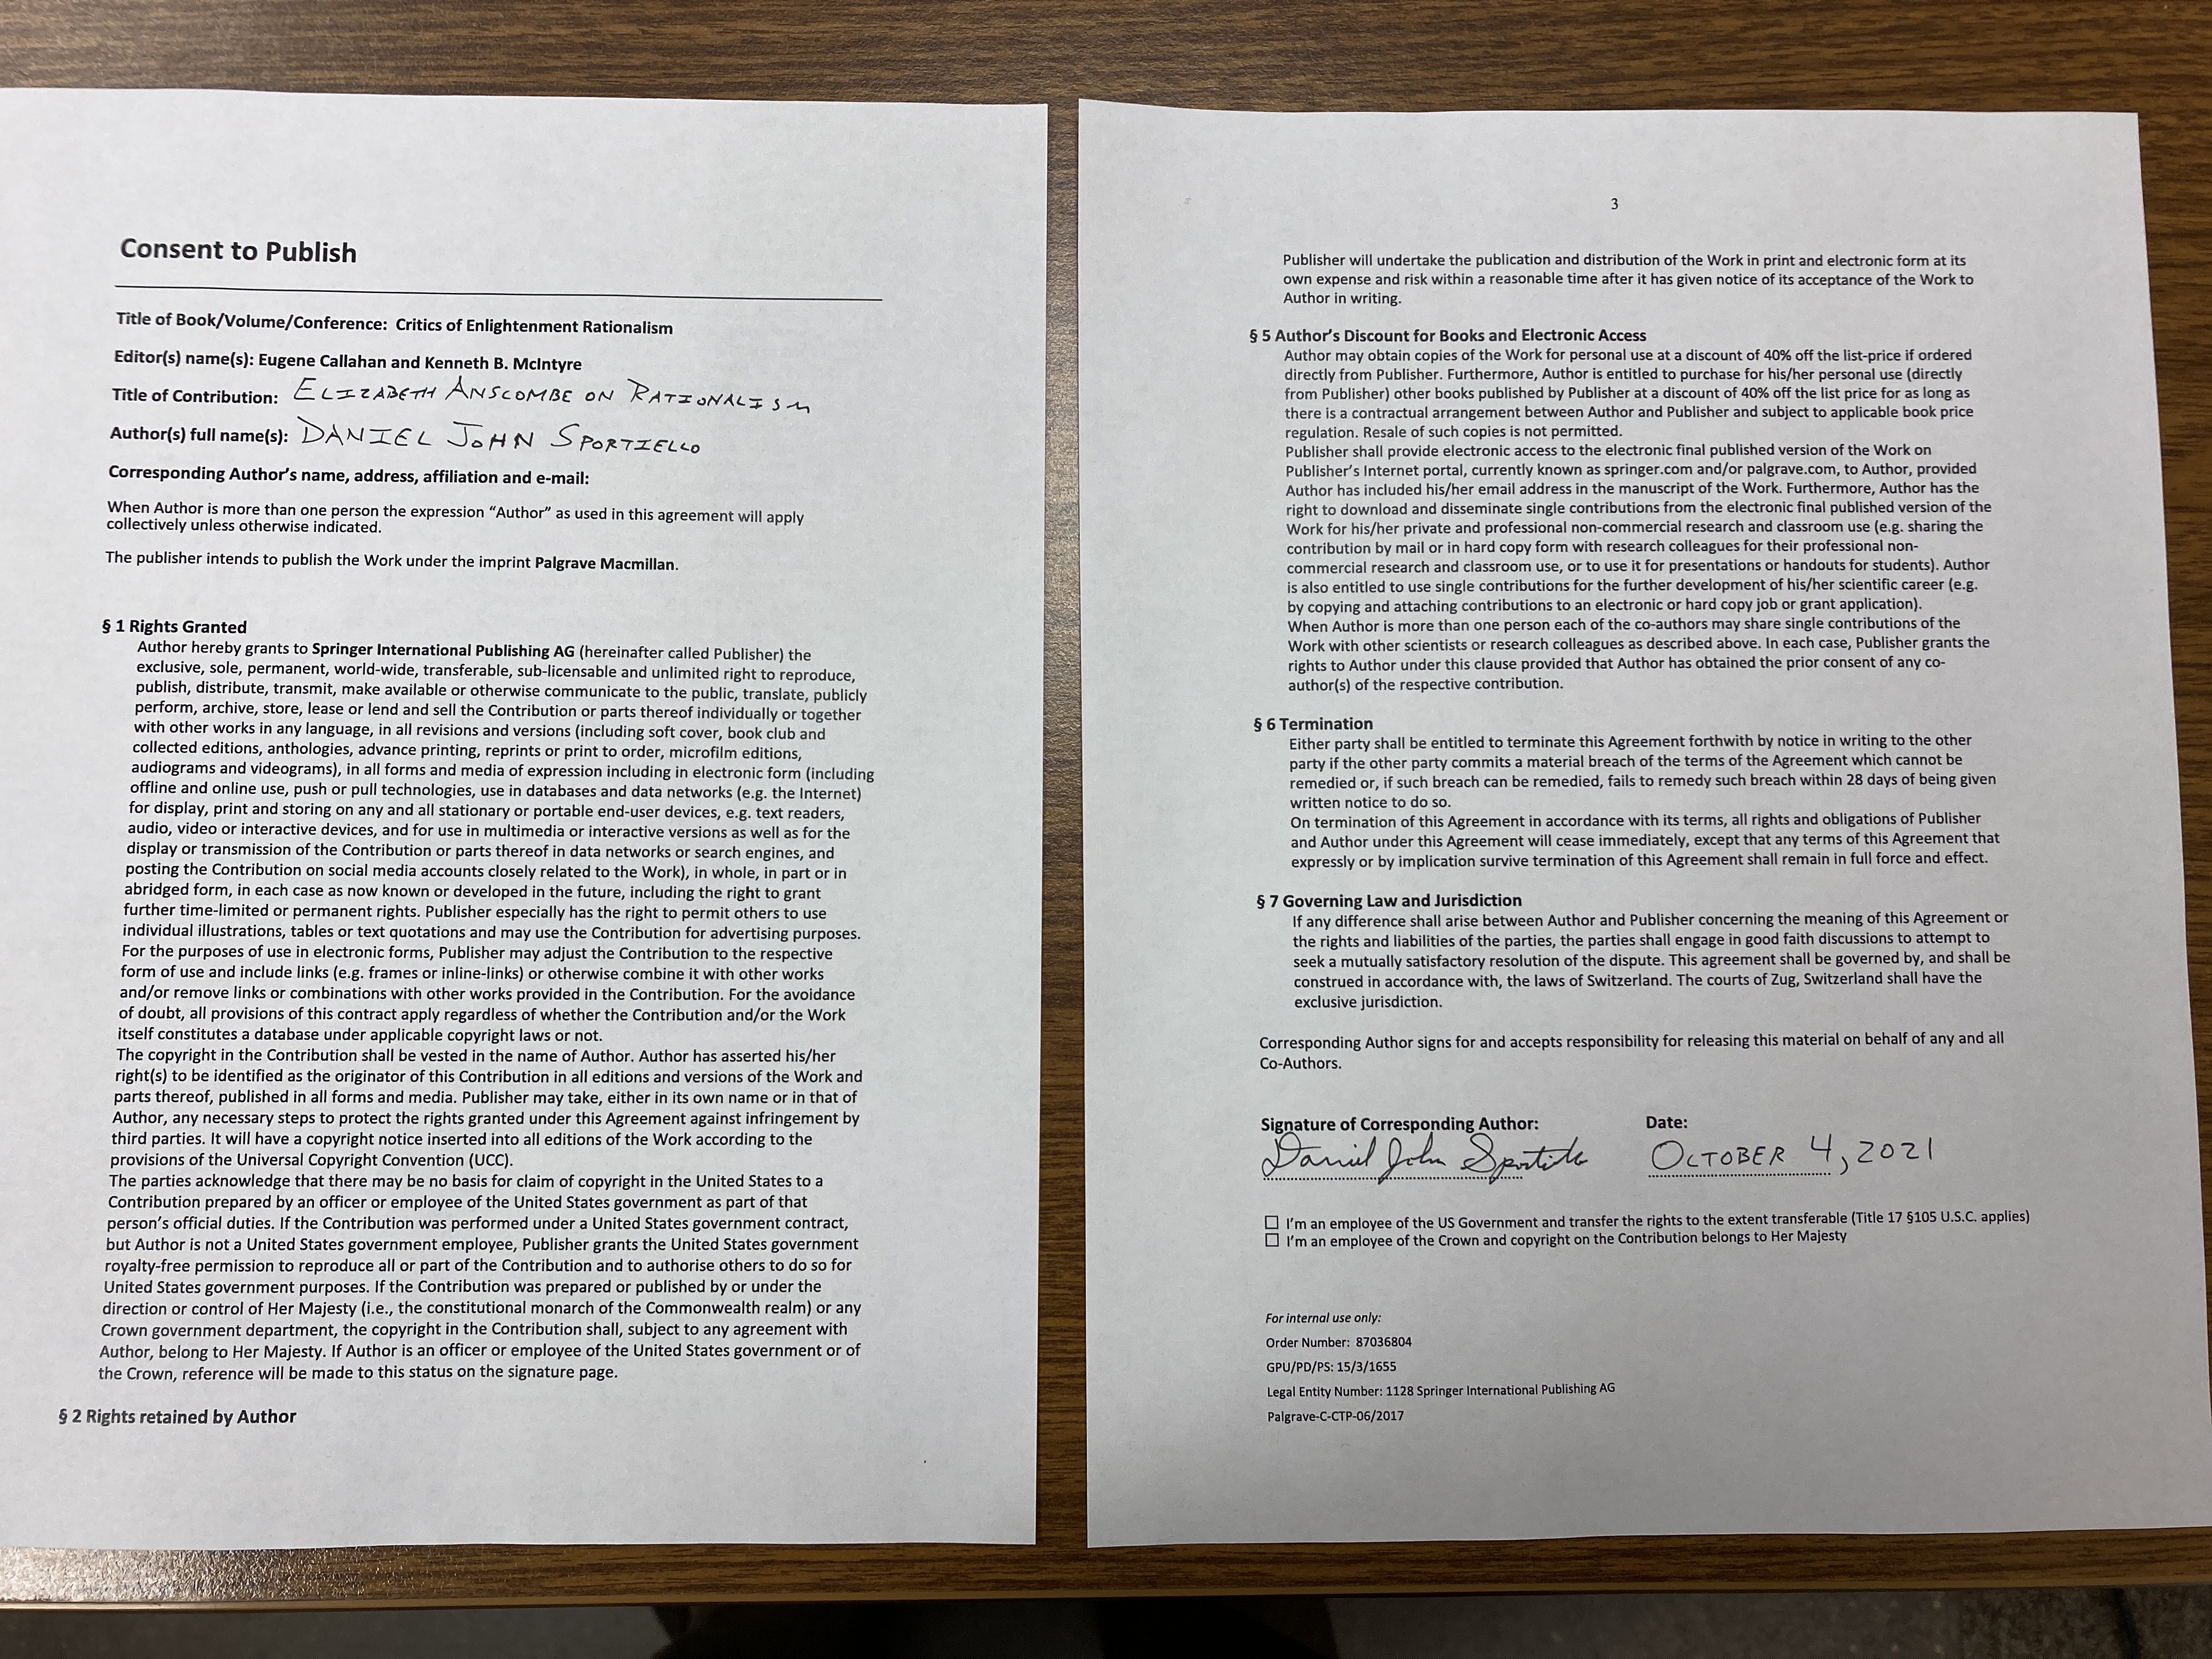 Consent to Publish
Title of Book/Volume/Conference: Critics of Enlightenment Rationalism
Editor(s) name(s): Eugene Callahan and Kenneth B. McIntyre
Title of Contribution: ELIZABETH ANSCOMBE ON RATIONALISM
Author(s) full name(s): DANIEL JOHN SPORTIELLO
Corresponding Author's name, address, affiliation and e-mail:
When Author is more than one person the expression "Author" as used in this agreement will apply
collectively unless otherwise indicated.
The publisher intends to publish the Work under the imprint Palgrave Macmillan.
§ 1 Rights Granted
Author hereby grants to Springer International Publishing AG (hereinafter called Publisher) the
exclusive, sole, permanent, world-wide, transferable, sub-licensable and unlimited right to reproduce,
publish, distribute, transmit, make available or otherwise communicate to the public, translate, publicly
perform, archive, store, lease or lend and sell the Contribution or parts thereof individually or together
with other works in any language, in all revisions and versions (including soft cover, book club and
collected editions, anthologies, advance printing, reprints or print to order, microfilm editions,
audiograms and videograms), in all forms and media of expression including in electronic form (including
offline and online use, push or pull technologies, use in databases and data networks (e.g. the Internet)
for display, print and storing on any and all stationary or portable end-user devices, e.g. text readers,
audio, video or interactive devices, and for use in multimedia or interactive versions as well as for the
display or transmission of the Contribution or parts thereof in data networks or search engines, and
posting the Contribution on social media accounts closely related to the Work), in whole, in part or in
abridged form, in each case as now known or developed in the future, including the right to grant
further time-limited or permanent rights. Publisher especially has the right to permit others to use
individual illustrations, tables or text quotations and may use the Contribution for advertising purposes.
For the purposes of use in electronic forms, Publisher may adjust the Contribution to the respective
form of use and include links (e.g. frames or inline-links) or otherwise combine it with other works
and/or remove links or combinations with other works provided in the Contribution. For the avoidance
of doubt, all provisions of this contract apply regardless of whether the Contribution and/or the Work
itself constitutes a database under applicable copyright laws or not.
The copyright in the Contribution shall be vested in the name of Author. Author has asserted his/her
right(s) to be identified as the originator of this Contribution in all editions and versions of the Work and
parts thereof, published in all forms and media. Publisher may take, either in its own name or in that of
Author, any necessary steps to protect the rights granted under this Agreement against infringement by
third parties. It will have a copyright notice inserted into all editions of the Work according to the
provisions of the Universal Copyright Convention (UCC).
The parties acknowledge that there may be no basis for claim of copyright in the United States to a
Contribution prepared by an officer or employee of the United States government as part of that
person's official duties. If the Contribution was performed under a United States government contract,
but Author is not a United States government employee, Publisher grants the United States government
royalty-free permission to reproduce all or part of the Contribution and to authorise others to do so for
United States government purposes. If the Contribution was prepared or published by or under the
direction or control of Her Majesty (i.e., the constitutional monarch of the Commonwealth realm) or any
Crown government department, the copyright in the Contribution shall, subject to any agreement with
Author, belong to Her Majesty. If Author is an officer or employee of the United States government or of
the Crown, reference will be made to this status on the signature page.
§ 2 Rights retained by Author
3
Publisher will undertake the publication and distribution of the Work in print and electronic form at its
own expense and risk within a reasonable time after it has given notice of its acceptance of the Work to
Author in writing.
§ 5 Author's Discount for Books and Electronic Access
Author may obtain copies of the Work for personal use at a discount of 40% off the list-price if ordered
directly from Publisher. Furthermore, Author is entitled to purchase for his/her personal use (directly
from Publisher) other books published by Publisher at a discount of 40% off the list price for as long as
there is a contractual arrangement between Author and Publisher and subject to applicable book price
regulation. Resale of such copies is not permitted.
Publisher shall provide electronic access to the electronic final published version of the Work on
Publisher's Internet portal, currently known as springer.com and/or palgrave.com, to Author, provided
Author has included his/her email address in the manuscript of the Work. Furthermore, Author has the
right to download and disseminate single contributions from the electronic final published version of the
Work for his/her private and professional non-commercial research and classroom use (e.g. sharing the
contribution by mail or in hard copy form with research colleagues for their professional non-
commercial research and classroom use, or to use it for presentations or handouts for students). Author
is also entitled to use single contributions for the further development of his/her scientific career (e.g.
by copying and attaching contributions to an electronic or hard copy job or grant application).
When Author is more than one person each of the co-authors may share single contributions of the
Work with other scientists or research colleagues as described above. In each case, Publisher grants the
rights to Author under this clause provided that Author has obtained the prior consent of any co-
author(s) of the respective contribution.
§ 6 Termination
Either party shall be entitled to terminate this Agreement forthwith by notice in writing to the other
party if the other party commits a material breach of the terms of the Agreement which cannot be
remedied or, if such breach can be remedied, fails to remedy such breach within 28 days of being given
written notice to do so.
On termination of this Agreement in accordance with its terms, all rights and obligations of Publisher
and Author under this Agreement will cease immediately, except that any terms of this Agreement that
expressly or by implication survive termination of this Agreement shall remain in full force and effect.
§ 7 Governing Law and Jurisdiction
If any difference shall arise between Author and Publisher concerning the meaning of this Agreement or
the rights and liabilities of the parties, the parties shall engage in good faith discussions to attempt to
seek a mutually satisfactory resolution of the dispute. This agreement shall be governed by, and shall be
construed in accordance with, the laws of Switzerland. The courts of Zug, Switzerland shall have the
exclusive jurisdiction.
Corresponding Author signs for and accepts responsibility for releasing this material on behalf of any and all
Co-Authors.
Signature of Corresponding Author: Date:
Daniel John Sportiello OCTOBER 4, 2021
I'm an employee of the US Government and transfer the rights to the extent transferable (Title 17 §105 U.S.C. applies)
I'm an employee of the Crown and copyright on the Contribution belongs to Her Majesty
For internal use only:
Order Number: 87036804
GPU/PD/PS: 15/3/1655
Legal Entity Number: 1128 Springer International Publishing AG
Palgrave-C-CTP-06/2017